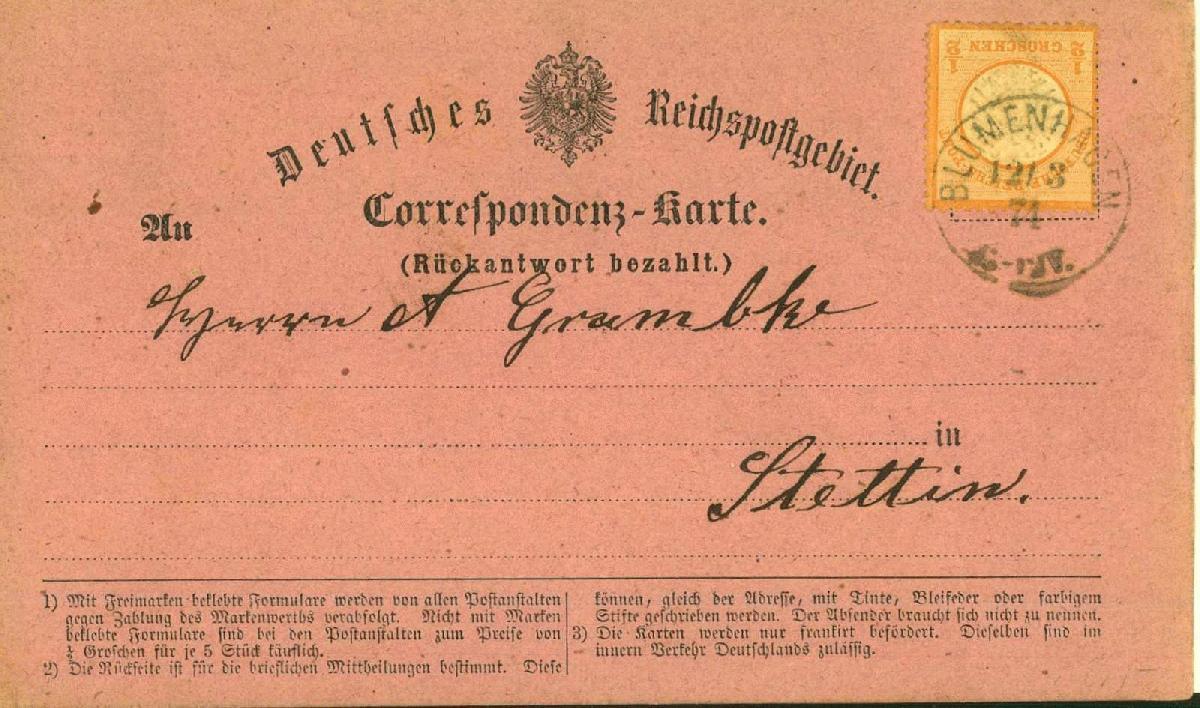 Deutsches Reichspostgebiet.
Correspondenz-Karte.
(Rückantwort bezahlt.)
½ GROSCHEN ½
BLUMENHAGEN
12/ 3
74
An
Herrn A Grambke
in
Stettin.
1) Mit Freimarken beklebte Formulare werden von allen Postanstalten
gegen Zahlung des Markenwerths verabfolgt. Nicht mit Marken
beklebte Formulare sind bei den Postanstalten zum Preise von
½ Groschen für je 5 Stück käuflich.
2) Die Rückseite ist für die brieflichen Mittheilungen bestimmt. Diese
können, gleich der Adresse, mit Tinte, Bleifeder oder farbigem
Stifte geschrieben werden. Der Absender braucht sich nicht zu nennen.
3) Die Karten werden nur frankirt befördert. Dieselben sind im
innern Verkehr Deutschlands zulässig.